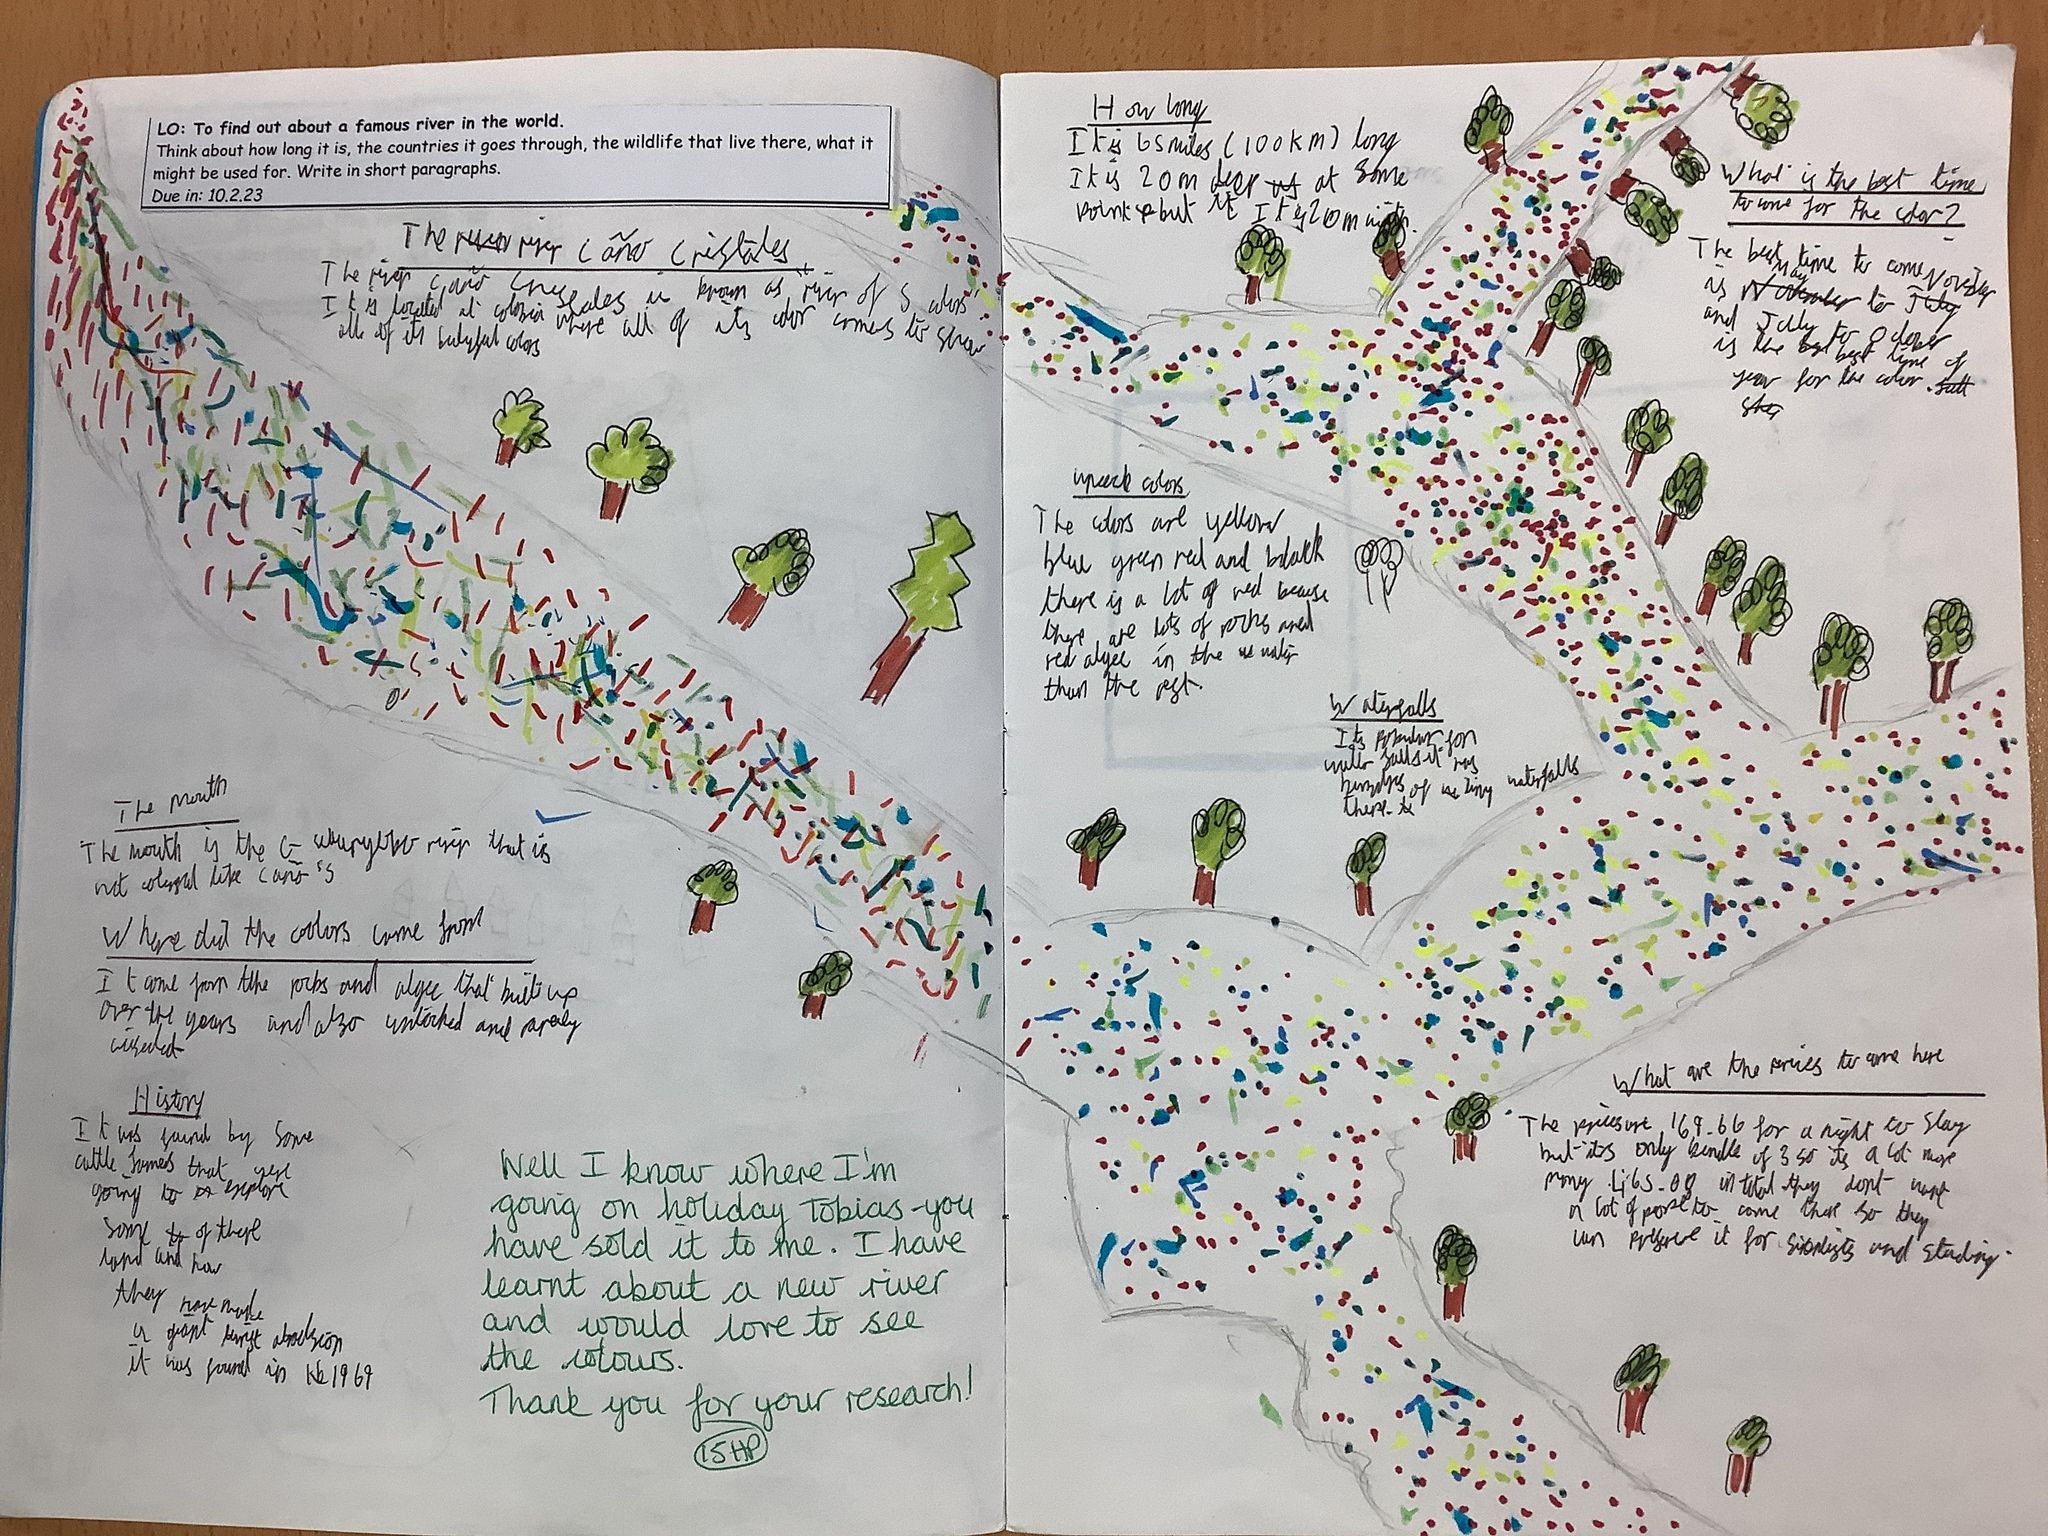 LO: To find out about a famous river in the world.
Think about how long it is, the countries it goes through, the wildlife that live there, what it
might be used for. Write in short paragraphs.
Due in: 10.2.23
The river Caño Cristales
The river Caño Cristales is known as "river of 5 colors"
It is located at where all of its color comes to show
all of its colors
The mouth
The mouth is the river that is
not like Caño's
Where did the colors come from
It come from the rocks and algee that built up
over the years and also and rarely
History
It was found by some
cattle that were
going to explore
some of there
land and how
they now made
a giant
it was found in 1969
Well I know where I'm
going on holiday Tobias - you
have sold it to me. I have
learnt about a new river
and would love to see
the colours.
Thank you for your research!
15HP
How long
It is 65 miles (100km) long
It is 20m deep at some
points but it It is 20m width.
What is the best time
to come for the color?
The best time to come
is May to July
and
is the best best time of
year for the color.
colors
The colors are yellow
blue green red and black
there is a lot of red because
there are lots of rocks and
red algee in the water
than the rest.
Waterfalls
Its popular for
water falls it has
of tiny waterfalls
there.
What are the prices to come here
The 169.66 for a night to stay
but its only of 3 so its a lot more
in total they dont want
a lot of to come there so they
can preserve it for and